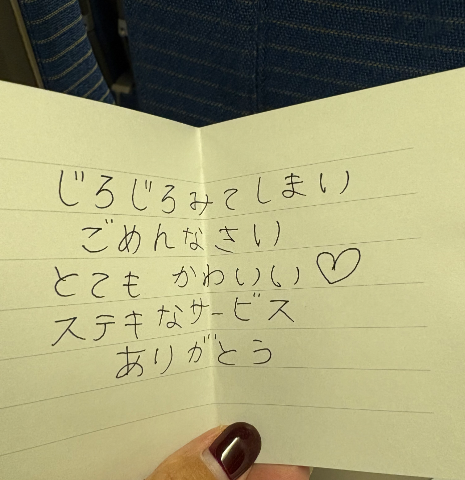 じろじろみてしまい
ごめんなさい
とても かわいい♡
ステキなサービス
ありがとう